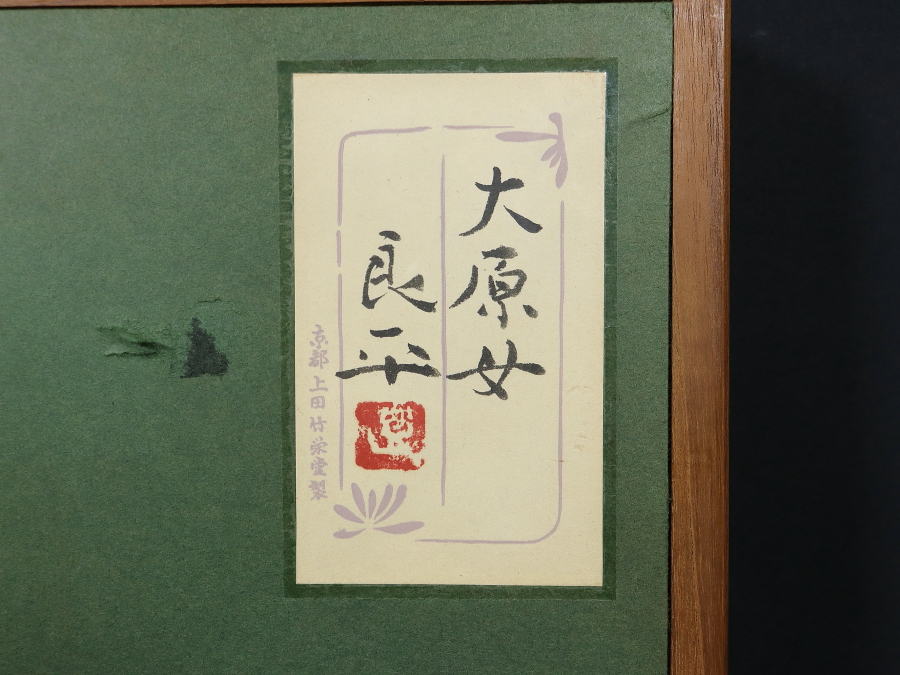 大原女
良平
京都 上田竹栄堂製